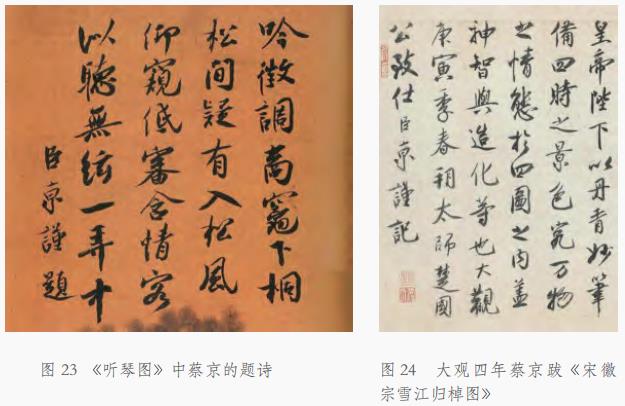 吟徵調商竈下桐
松間疑有入松風
仰窺低審含情客
以聽無絃一弄中
臣京謹題
皇帝陛下以丹青妙筆
備四時之景色究万物
之情態於四圖之内蓋
神智與造化等也大觀
庚寅季春朔太師楚國
公致仕臣京謹記
图 23 《听琴图》中蔡京的题诗
图 24 大观四年蔡京跋《宋徽
宗雪江归棹图》